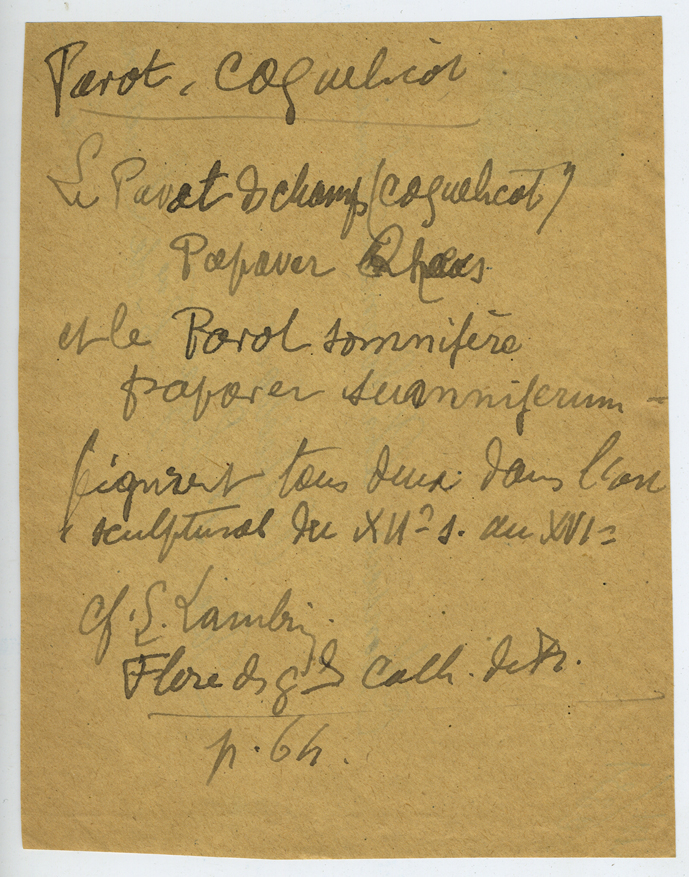 Pavot, coquelicot.
Le Pavot ds champs (coquelicot)
Papaver Rhoeas
et le Pavot somnifère
papaver somniferum -
figurent tous deux dans l'art
sculptural du XIIe s. au XVIe
cf. E. Lambin
Flore ds gds cath. de Fr.
p. 64.